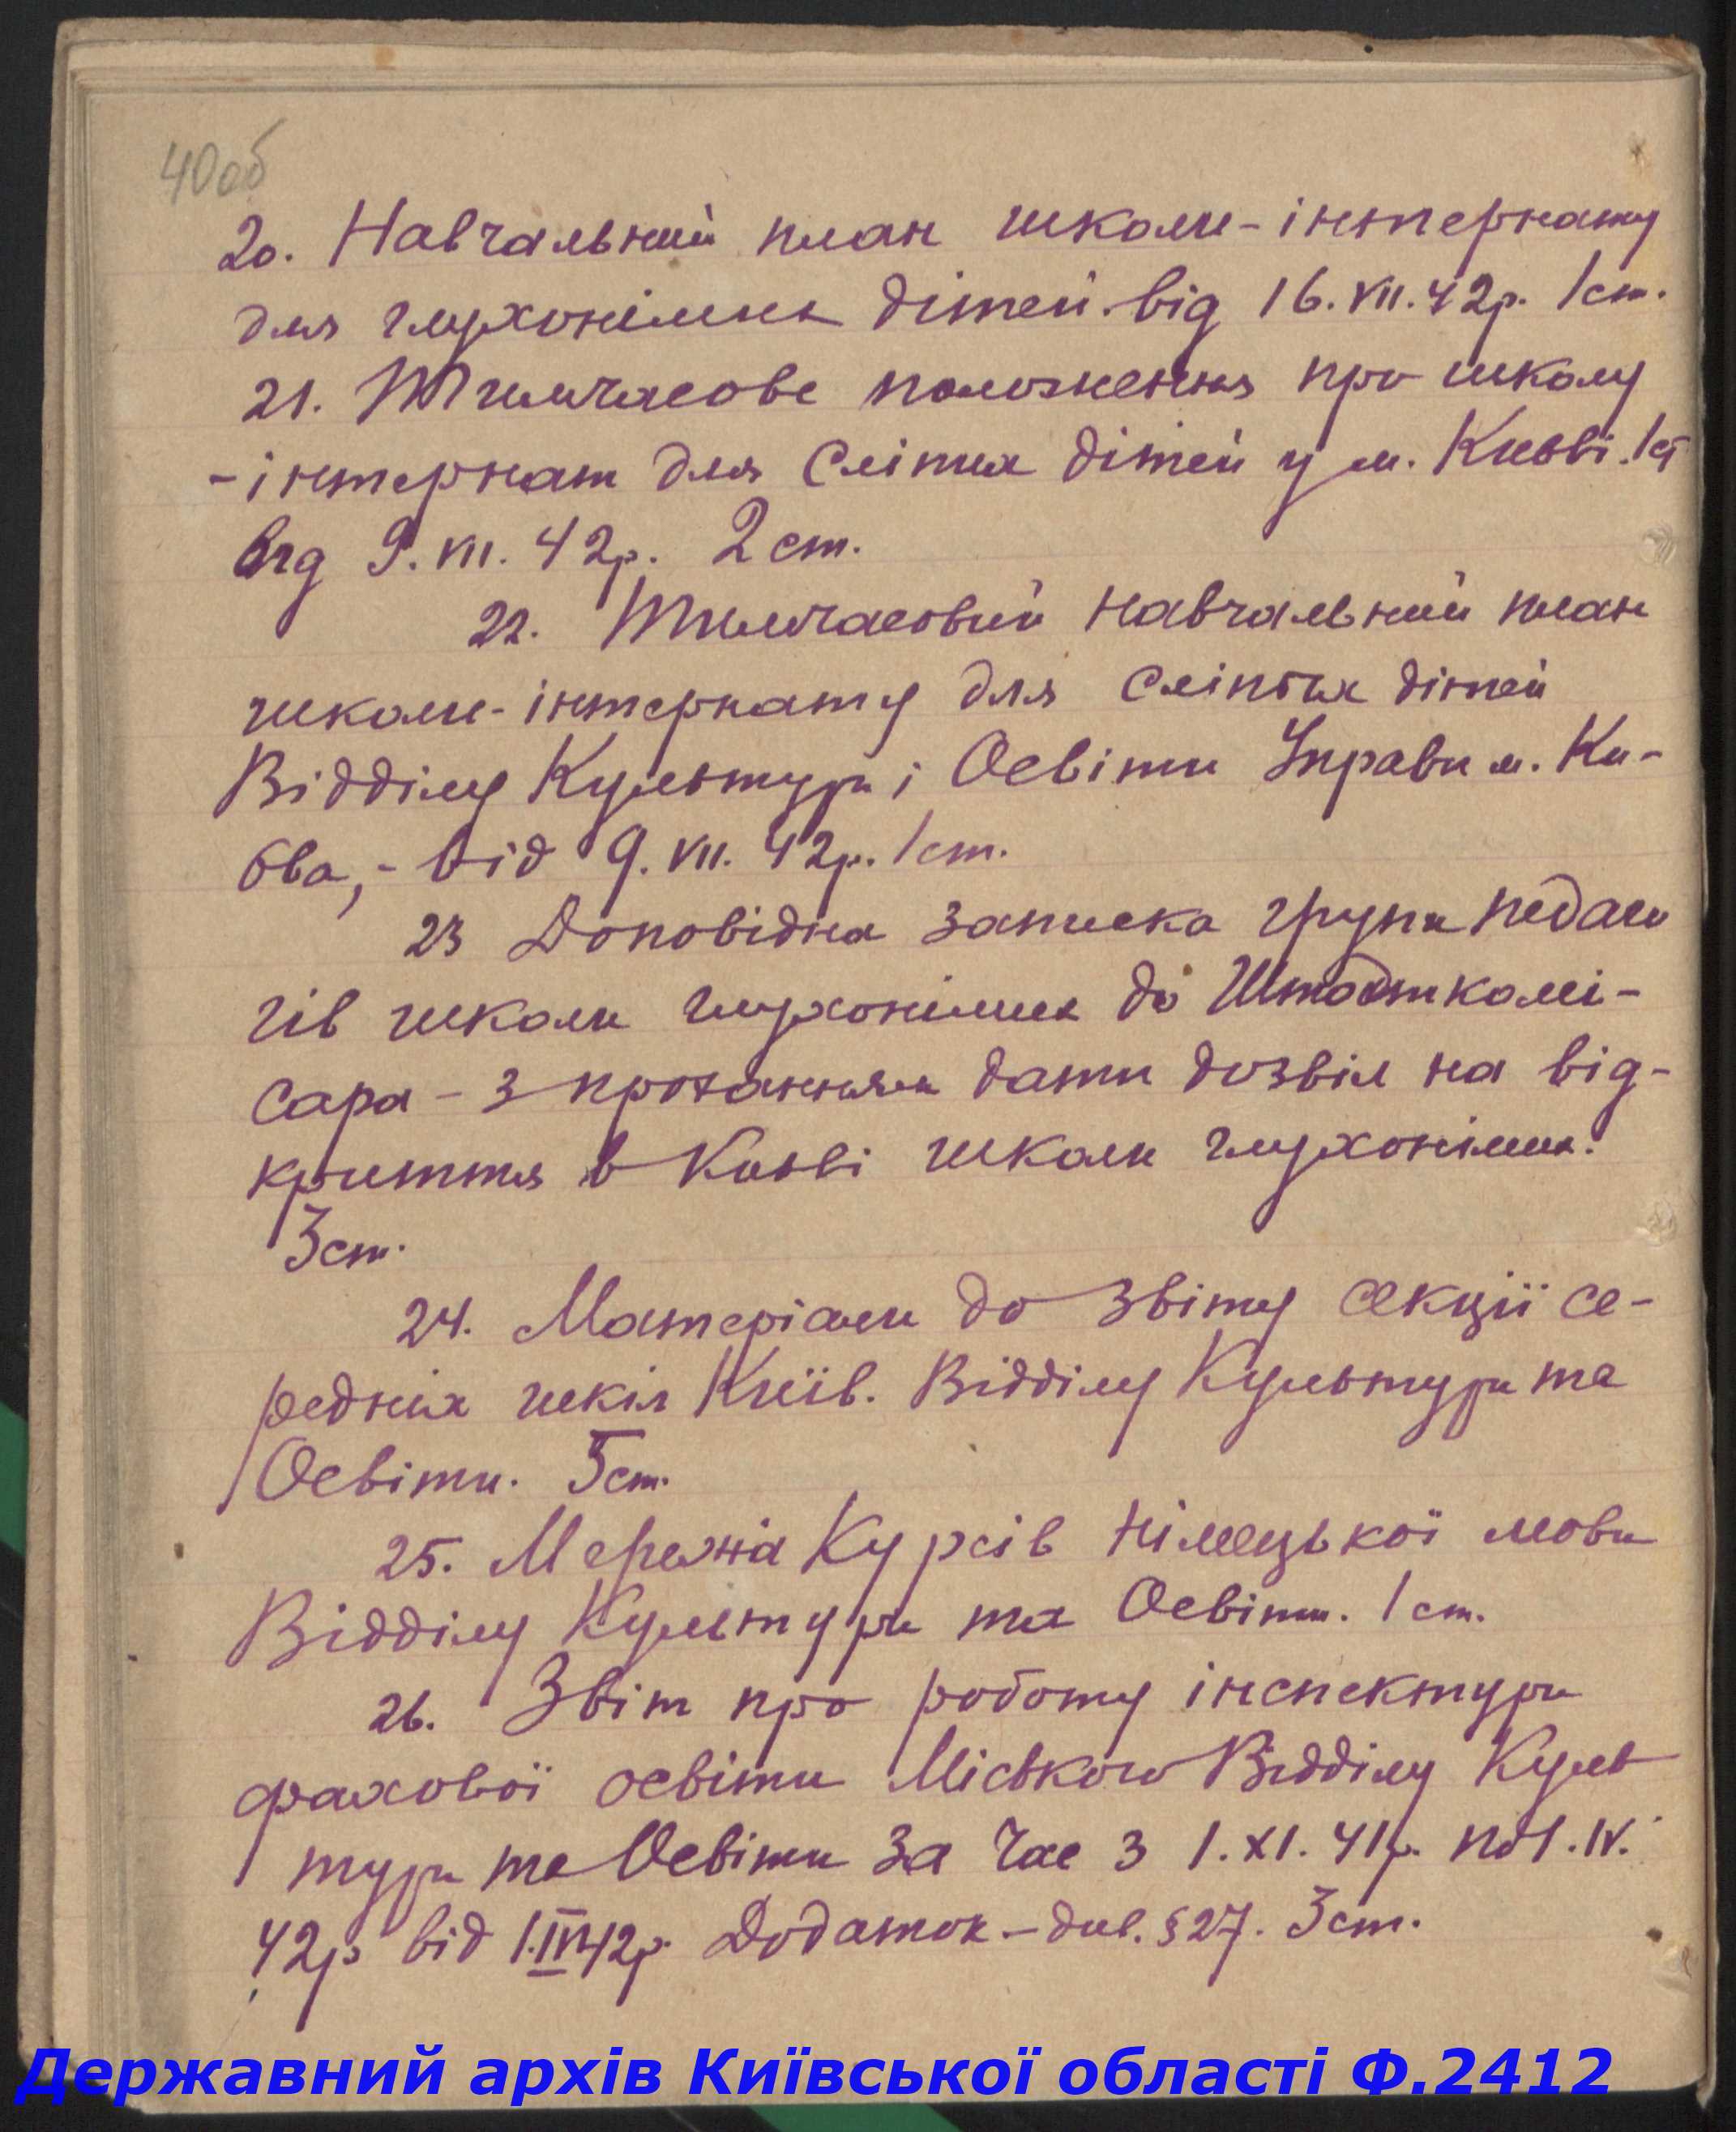 40об
20. Навчальний план школи-інтернату
для глухонімих дітей від 16.VII.42р. 1ст.
21. Тимчасове положення про школу
-інтернат для сліпих дітей у м. Києві. 1ст
від 9.VII.42р. 2ст.
22. Тимчасовий навчальний план
школи-інтернату для сліпих дітей
Відділу Культури і Освіти Управи м. Ки-
єва,- від 9.VII.42р. 1ст.
23 Доповідна записка групи педаго
гів школи глухонімих до Штадткомі-
сара - з проханням дати дозвіл на від-
криття в Києві школи глухонімих.
3ст.
24. Матеріали до звіту секції се-
редніх шкіл Київ. Відділу Культури та
Освіти. 5ст.
25. Мережа Курсів німецької мови
Відділу Культури та Освіти. 1ст.
26. Звіт про роботу інспектури
фахової освіти Міського Відділу Куль
тури та Освіти за час з 1.XI.41р. по 1.IV.
42р від 42р. Додаток - див. §27. 3ст.
Державний архів Київської області Ф.2412